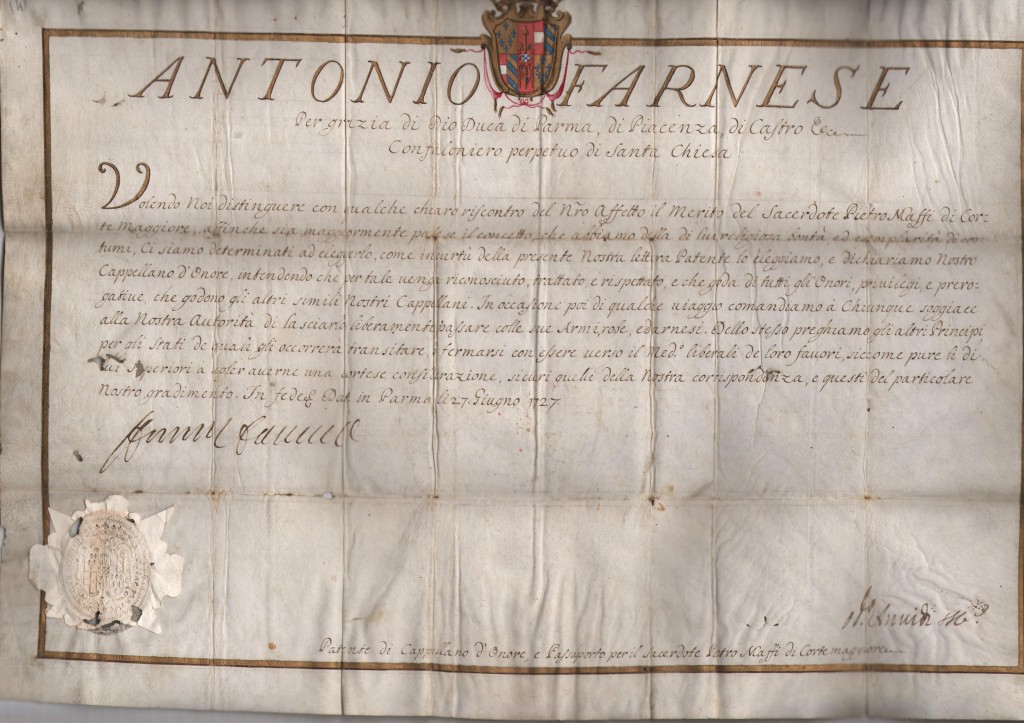 ANTONIO FARNESE
Per grazia di Dio Duca di Parma, di Piacenza, di Castro &c
Confaloniero perpetuo di Santa Chiesa
Volendo Noi distinguere con qualche chiaro riscontro del Nr̃o Affetto il Merito del Sacerdote Pietro Maffi di Cor-
te Maggiore, affinche sia maggiormente palese il concetto, che abbiamo della di lui religiosa bontà ed esemplarità di cos-
tumi, Ci siamo determinati ad eleggerlo, come in virtù della presente Nostra lettera Patente lo eleggiamo, e dichiariamo Nostro
Cappellano d'Onore, intendendo che per tale venga riconosciuto, trattato, e rispettato, e che goda di tutti gli Onori, privilegi, e prero-
gative, che godono gli altri simili Nostri Cappellani. In occasione poi di qualche viaggio comandiamo à Chiunque soggiace
alla Nostra Autorità di lasciarlo liberamente passare colle sue Armi, robe, ed arnesi. Dello stesso preghiamo gli altri Principi,
per gli Stati de quali gli occorrerà transitare, ò fermarsi con essere verso il Med.º liberali de loro favori, siccome pure li di
lui Superiori a voler averne una cortese considerazione, sicuri quelli della Nostra corrispondenza, e questi del particolare
Nostro gradimento. In fede & Dat. in Parma li 27. Giugno 1727.
Patente di Cappellano d'Onore, e Passaporto per il Sacerdote Pietro Maffi di Corte maggiore